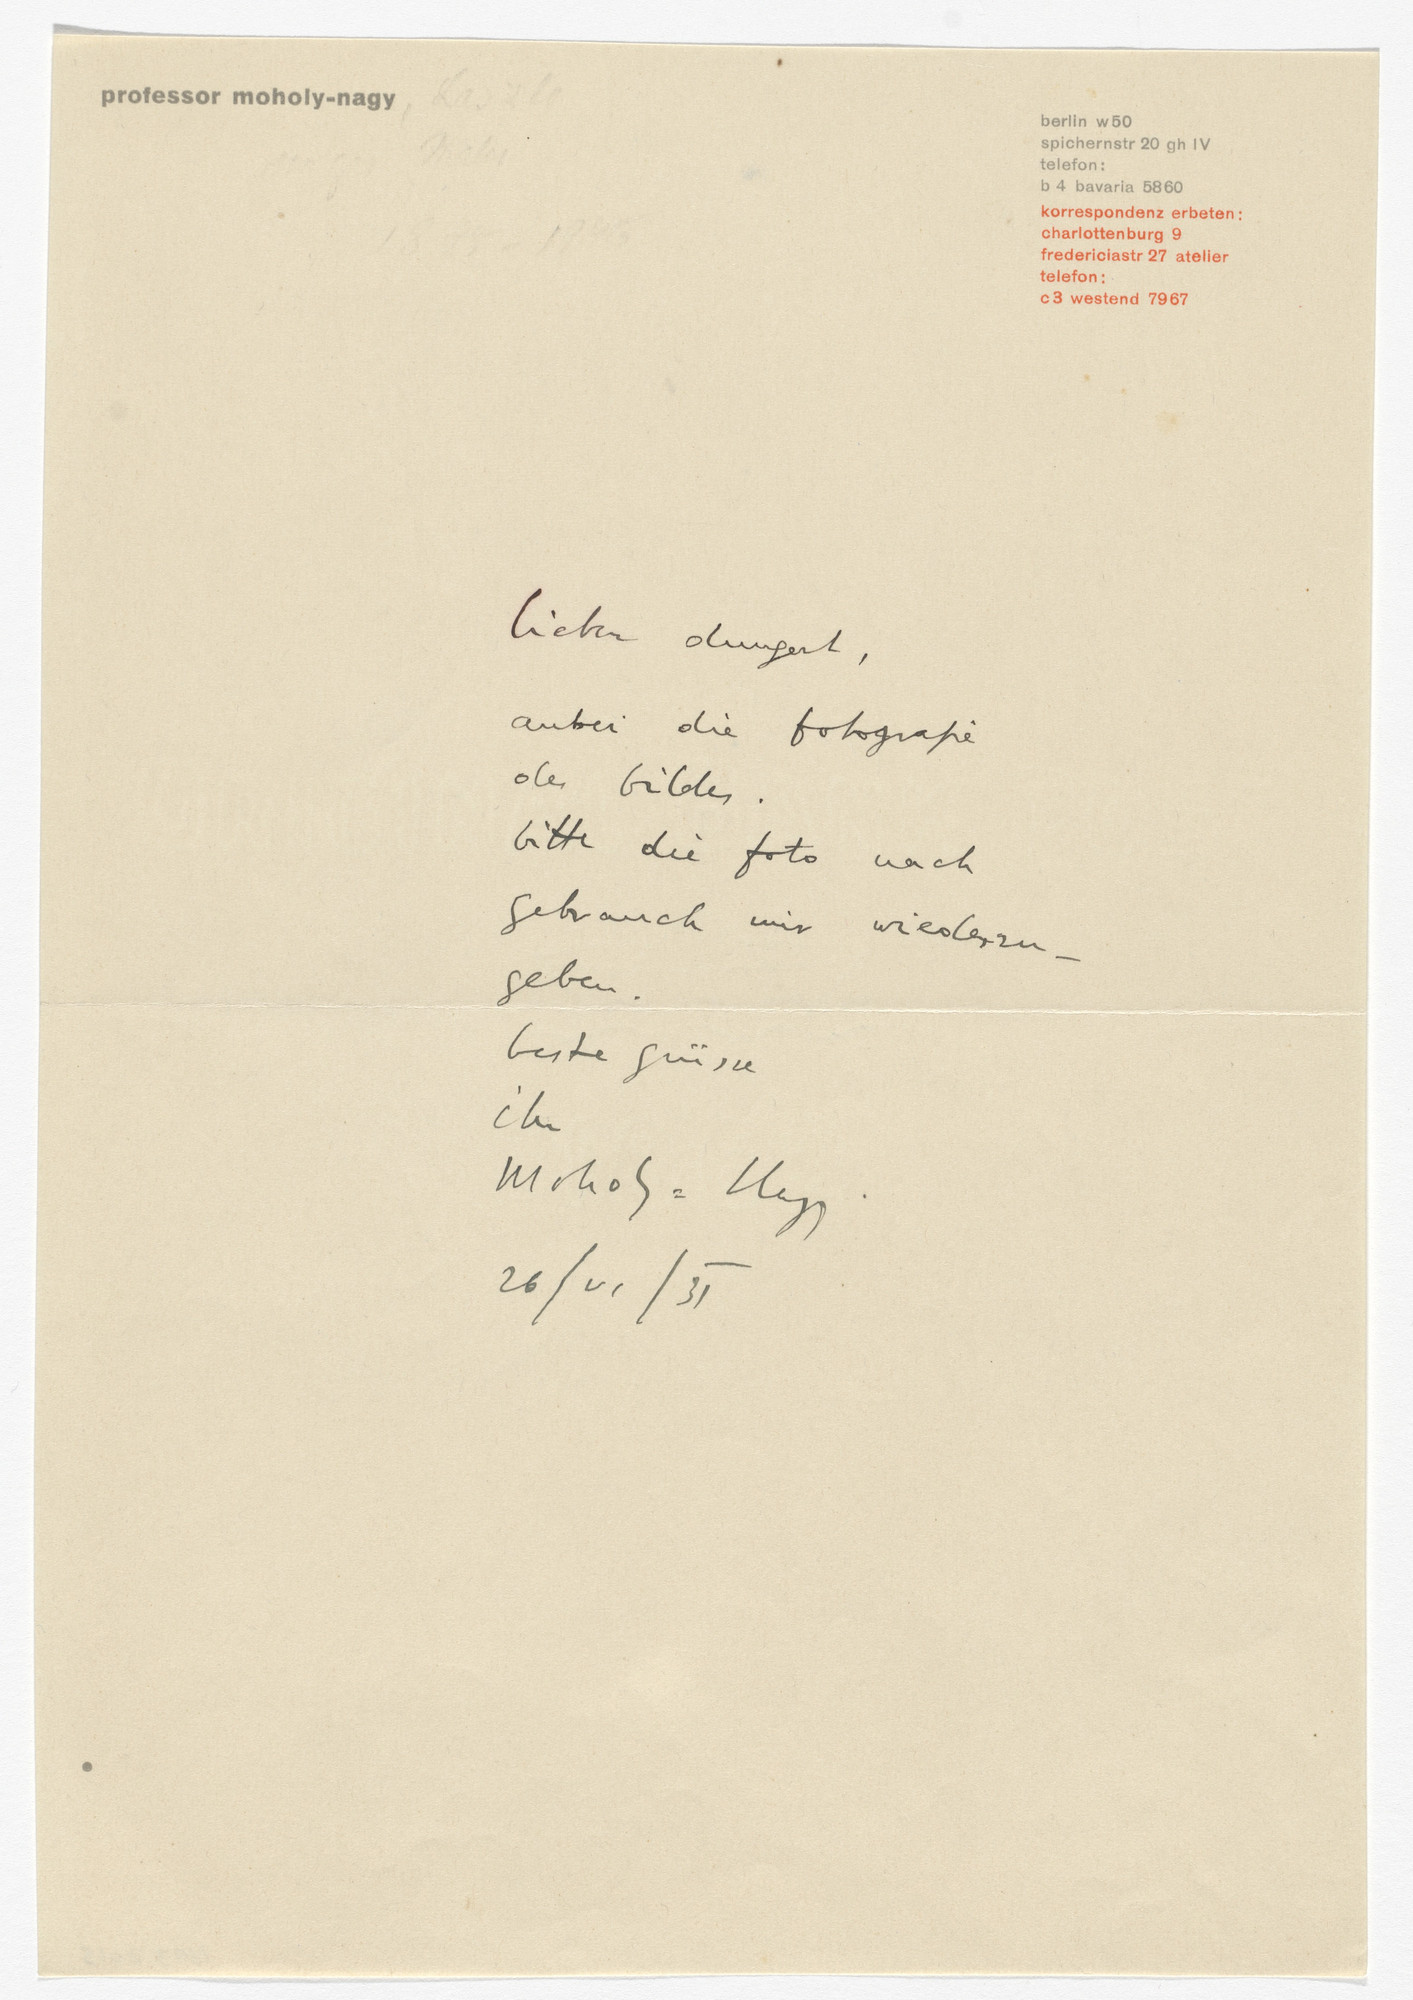 professor moholy-nagy
berlin w50
spichernstr 20 gh IV
telefon:
b 4 bavaria 5860
korrespondenz erbeten:
charlottenburg 9
fredericiastr 27 atelier
telefon:
c3 westend 7967
lieber dungert,
anbei die fotografie
des bildes.
bitte die foto nach
gebrauch mir wiederzu-
geben.
beste grüsse
ihr
Moholy=Nagy.
26/VI/31